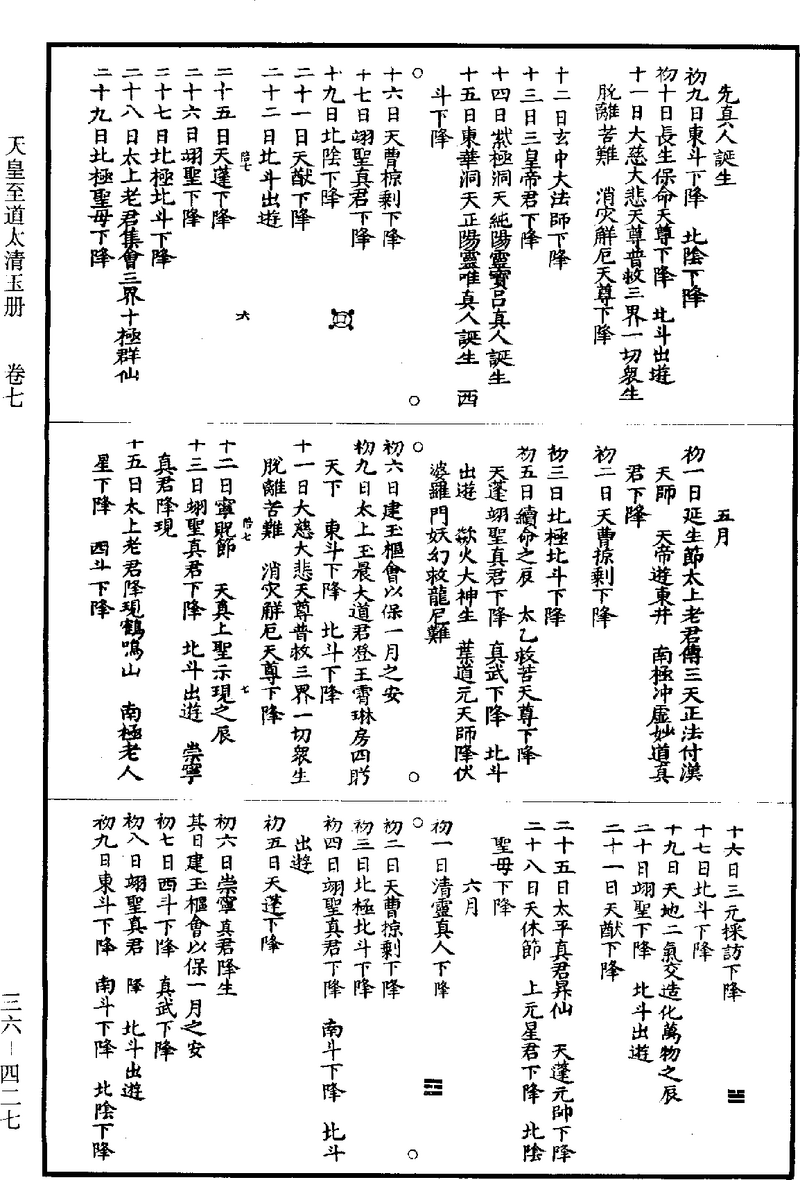 先真人誕生
初九日東斗下降　北陰下降
初十日長生保命天尊下降　北斗出遊
十一日大慈大悲天尊普救三界一切衆生
脫離苦難　消灾解厄天尊下降
十二日玄中大法師下降
十三日三皇帝君下降
十四日紫極洞天純陽靈寶呂真人誕生
十五日東華洞天正陽靈唯真人誕生　西
斗下降
十六日天曹掠剩下降
十七日翊聖真君下降
十九日北陰下降
二十一日天猷下降
二十二日北斗出遊
陪七　六
二十五日天蓬下降
二十六日翊聖下降
二十七日北極北斗下降
二十八日太上老君集會三界十極群仙
二十九日北極聖母下降
五月
初一日延生節太上老君傳三天正法付漢
天師　天帝遊東井　南極冲虛妙道真
君下降
初二日天曹掠剩下降
初三日北極北斗下降
初五日續命之辰　太乙救苦天尊下降
天蓬翊聖真君下降　真武下降　北斗
出遊　歘火大神生　葉道元天師降伏
婆羅門妖幻救龍尼難
初六日建玉樞會以保一月之安
初九日太上玉晨大道君登玉霄琳房四盻
天下　東斗下降　北斗下降
十一日大慈大悲天尊普救三界一切衆生
脫離苦難　消灾解厄天尊下降
陪七　七
十二日寧貺節　天真上聖示現之辰
十三日翊聖真君下降　北斗出遊　崇寧
真君降現
十五日太上老君降現鶴鳴山　南極老人
星下降　西斗下降
十六日三元採訪下降
十七日北斗下降
十九日天地二氣交造化萬物之辰
二十日翊聖下降　北斗出遊
二十一日天猷下降
二十五日太平真君昇仙　天蓬元帥下降
二十八日天休節　上元星君下降　北陰
聖母下降
六月
初一日清靈真人下降
初二日天曹掠剩下降
初三日北極北斗下降
初四日翊聖真君下降　南斗下降　北斗
出遊
初五日天蓬下降
初六日崇寧真君降生
其日建玉樞會以保一月之安
初七日西斗下降　真武下降
初八日翊聖真君　降　北斗出遊
初九日東斗下降　南斗下降　北陰下降
天皇至道太清玉册　卷七
三六—四二七